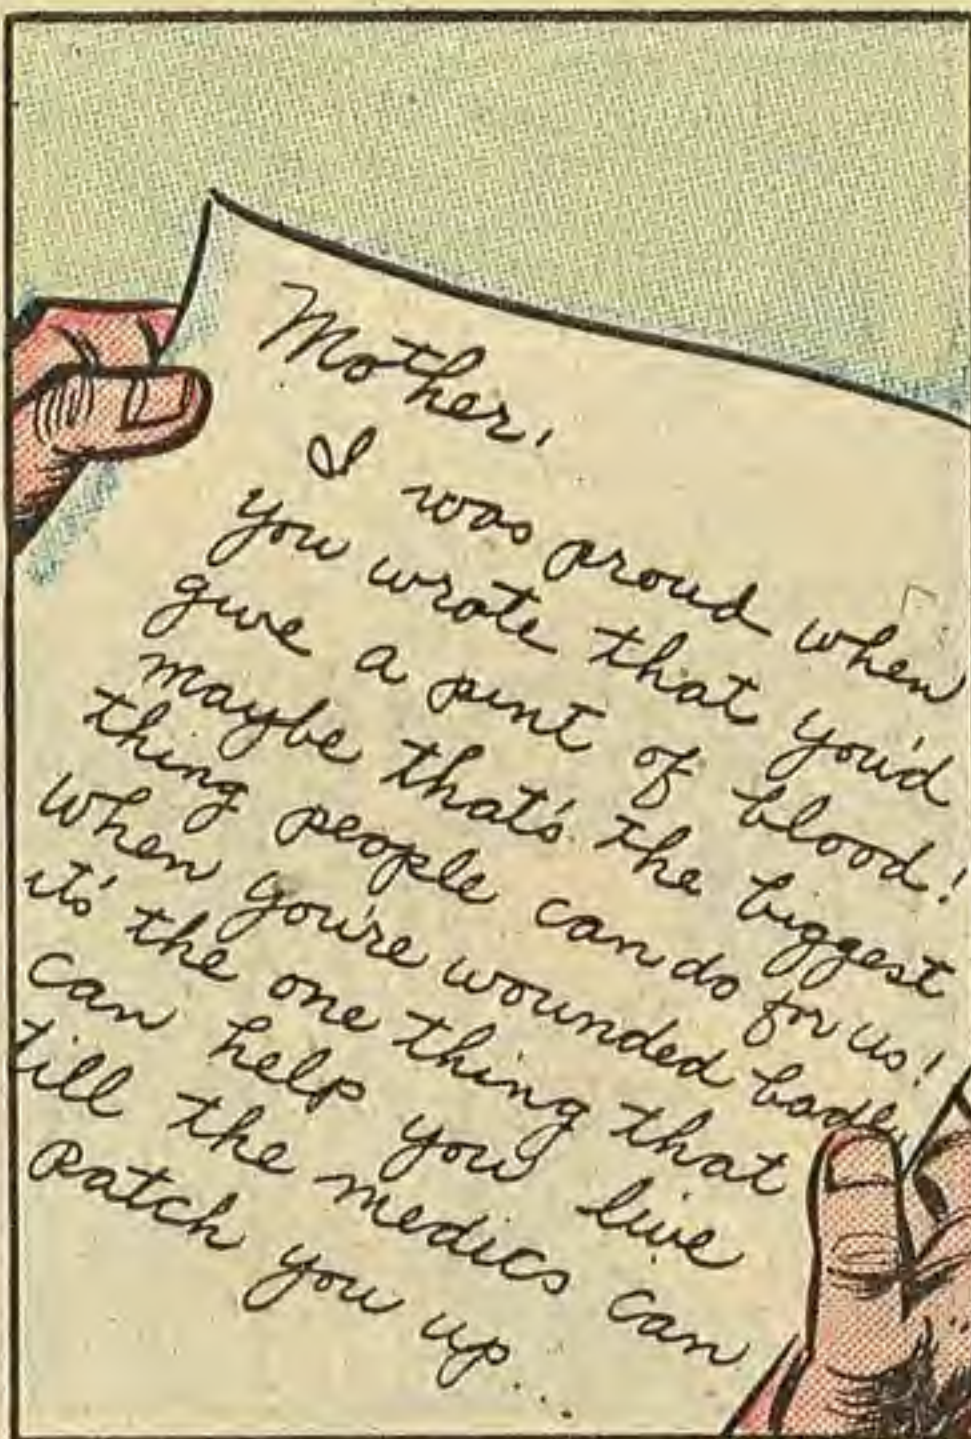 Mother,
I was proud when
you wrote that you'd
give a pint of blood!
maybe that's the biggest
thing people can do for us!
When you're wounded badly
it's the one thing that
can help you live
till the medics can
patch you up...